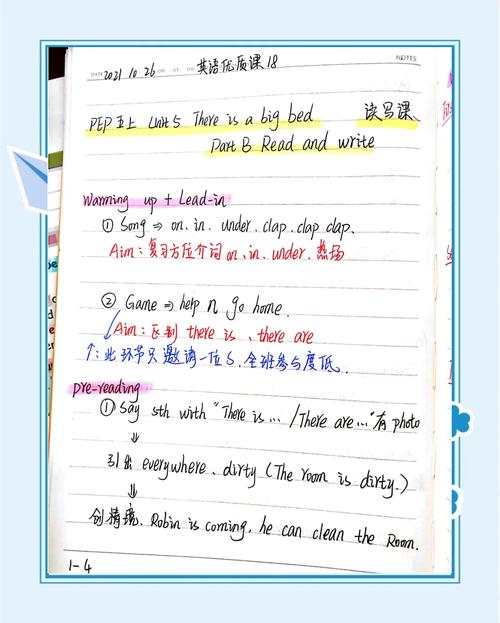 DATE 2021 10 26 英语优质课18 NOTES
PEP五上 Unit 5 There is a big bed 读写课
Part B Read and write
Warming up + Lead-in
① Song ⇒ on. in. under. clap. clap. clap.
Aim: 复习方位介词 on、in、under. 热场
② Game ⇒ help n go home.
Aim: 区别 there is 、there are
↑: 此环节只邀请一位S, 全班参与度低.
pre-reading
① Say sth with "There is... /There are..." 有 photo
⇓
引出 everywhere、dirty (The room is dirty.)
⇓
创情境、Robin is coming, he can clean the Room.
1-4